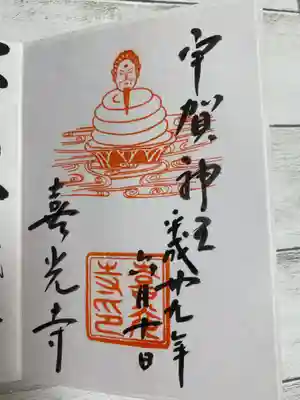 宇賀神王
平成廿九年
六月十日
喜光寺